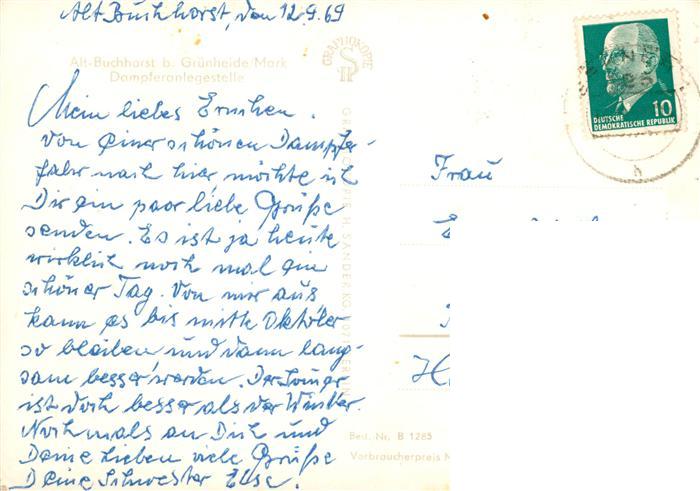 Alt Buchhorst, den 12.9.69
Alt-Buchhorst b. Grünheide/Mark
Dampferanlegestelle
Mein liebes Ernchen.
Von einer schönen Dampfer-
fahr nach hier, möchte ich
Dir ein paar liebe Grüße
senden. Es ist ja heute
wirklich noch mal ein
schöner Tag. Von mir aus
kann es bis mitte Oktober
so bleiben und dann lang-
sam besser werden. Der
ist doch besser als der Winter.
Nochmals an Dich und
Deine Lieben viele Grüße
Deine Schwester Else.
GRAPHOKOPIE
H. SANDER KG
DEUTSCHE
DEMOKRATISCHE REPUBLIK
10
Frau
E
H
Best. Nr. B 1285
Verbraucherpreis M